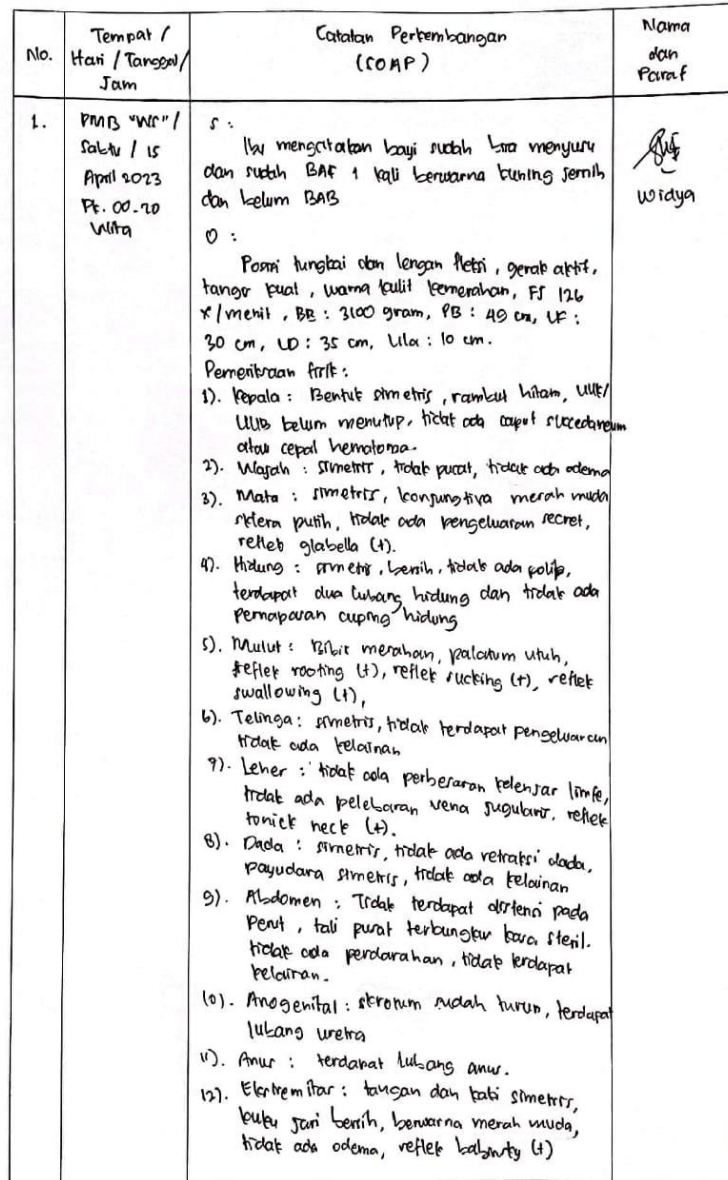 No.
Tempat /
Hari / Tanggal /
Jam
Catatan Perkembangan
(SOAP)
Nama
dan
Paraf
1.
PMB "WS" /
Sabtu / 15
April 2023
Pk. 00.20
Wita
S :
Ibu mengatakan bayi sudah bisa menyusu
dan sudah BAK 1 kali berwarna kuning jernih
dan belum BAB
O :
Posisi tungkai dan lengan fleksi, gerak aktif,
tangis kuat, warna kulit kemerahan, FJ 126
x/menit, BB : 3100 gram, PB : 49 cm, LK :
30 cm, LD : 35 cm, Lila : 10 cm.
Pemeriksaan fisik :
1). Kepala : Bentuk simetris, rambut hitam, UUK/
UUB belum menutup, tidak ada caput succedaneum
atau cepal hematoma.
2). Wajah : simetris, tidak pucat, tidak ada odema
3). Mata : simetris, konjungtiva merah muda
sklera putih, tidak ada pengeluaran secret,
reflek glabella (+).
4). Hidung : simetris, bersih, tidak ada polip,
terdapat dua lubang hidung dan tidak ada
pernapasan cuping hidung
5). Mulut : Bibir merahan, palatum utuh,
reflek rooting (+), reflek sucking (+), reflek
swallowing (+),
6). Telinga : simetris, tidak terdapat pengeluaran
tidak ada kelainan
7). Leher : tidak ada perbesaran kelenjar limfe,
tidak ada pelebaran vena jugularis, reflek
tonick neck (+).
8). Dada : simetris, tidak ada retraksi dada,
payudara simetris, tidak ada kelainan
9). Abdomen : Tidak terdapat distensi pada
perut, tali pusat terbungkus kasa steril.
tidak ada perdarahan, tidak terdapat
kelainan.
10). Anogenital : skrotum sudah turun, terdapat
lubang uretra
11). Anus : terdapat lubang anus.
12). Ekstremitas : tangan dan kaki simetris,
kuku jari bersih, berwarna merah muda,
tidak ada odema, reflek babinsky (+)
Widya